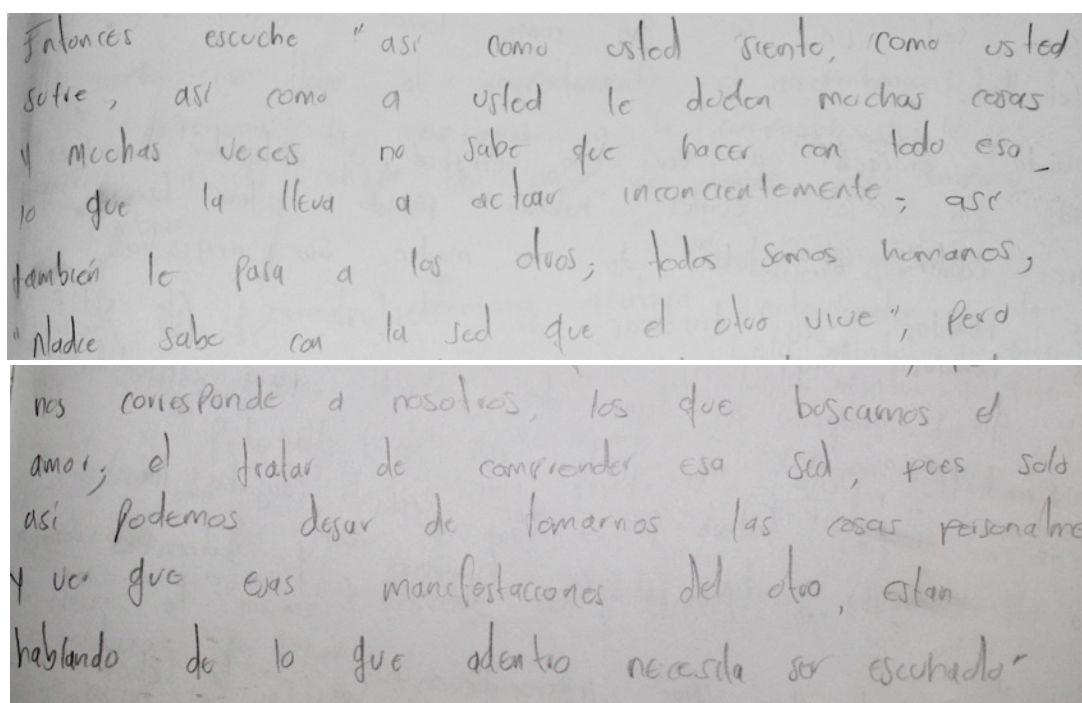 Entonces escuche "así como usted siente, como usted
sufre, así como a usted le duelen muchas cosas
y muchas veces no sabe que hacer con todo eso
lo que la lleva a actuar inconcientemente; así
también le pasa a los otros; todos somos humanos;
"Nadie sabe con la sed que el otro vive", pero
nos corresponde a nosotros, los que buscamos el
amor; el tratar de comprender esa sed, pues solo
así podemos dejar de tomarnos las cosas personalme
y ver que esas manifestaciones del otro, estan
hablando de lo que adentro necesita ser escuhado"